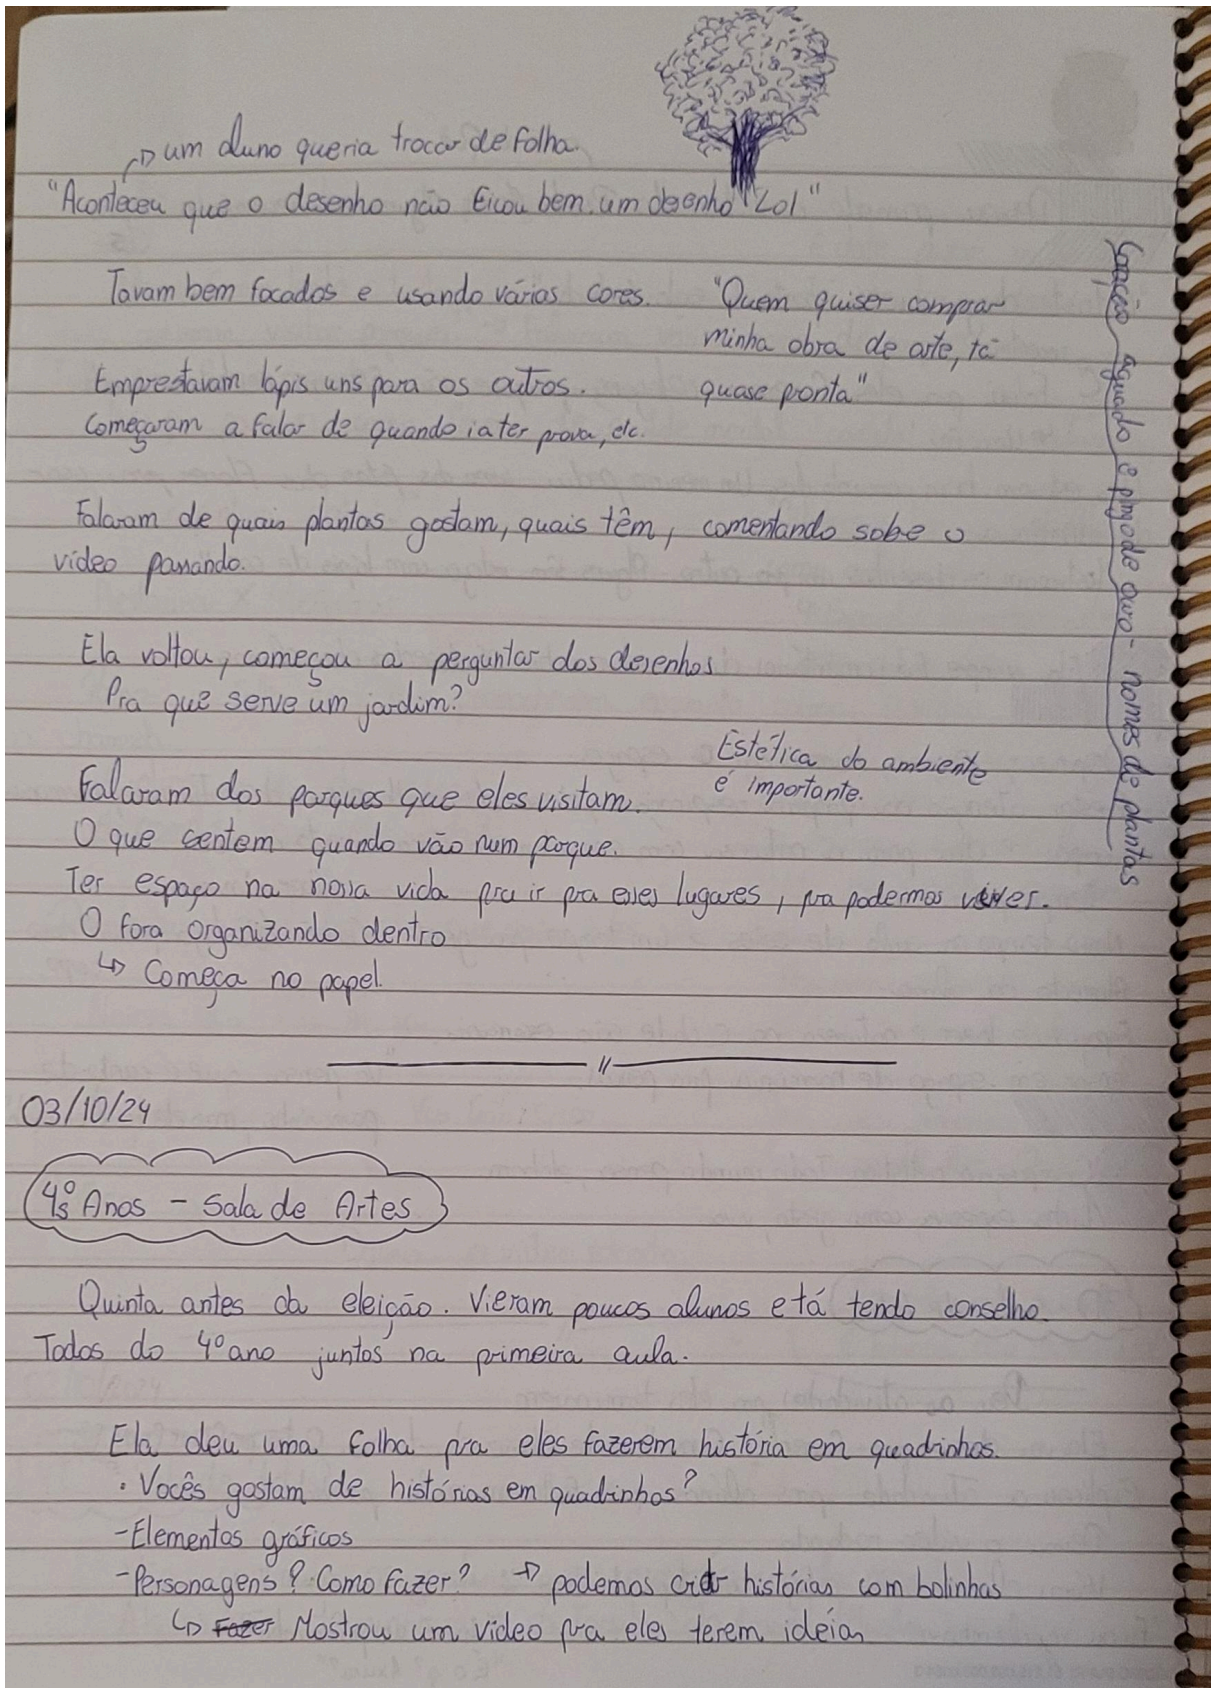 ↳ um aluno queria trocar de folha.
"Aconteceu que o desenho não ficou bem um desenho" Lol"
Tavam bem focados e usando várias cores.
"Quem quiser comprar
minha obra de arte, tá
quase ponta"
Emprestavam lápis uns para os outros.
Começaram a falar de quando ia ter prova, etc.
Falaram de quais plantas gostam, quais têm, comentando sobe o
vídeo passando.
Ela voltou, começou a perguntar dos desenhos
Pra quê serve um jardim?
Estética do ambiente
é importante.
Falaram dos parques que eles visitam.
O que sentem quando vão num parque.
Ter espaço na nossa vida pra ir pra esses lugares, pra podermos viver.
O fora organizando dentro
↳ Começa no papel.
Coração e pingo de ouro - nomes de plantas
03/10/24
4ºs Anos - Sala de Artes
Quinta antes da eleição. Vieram poucos alunos e tá tendo conselho.
Todos do 4º ano juntos na primeira aula.
Ela deu uma folha pra eles fazerem história em quadrinhos.
· Vocês gostam de histórias em quadrinhos?
- Elementos gráficos
- Personagens? Como fazer? → podemos criar histórias com bolinhas
↳ Fazer Mostrou um vídeo pra eles terem ideias